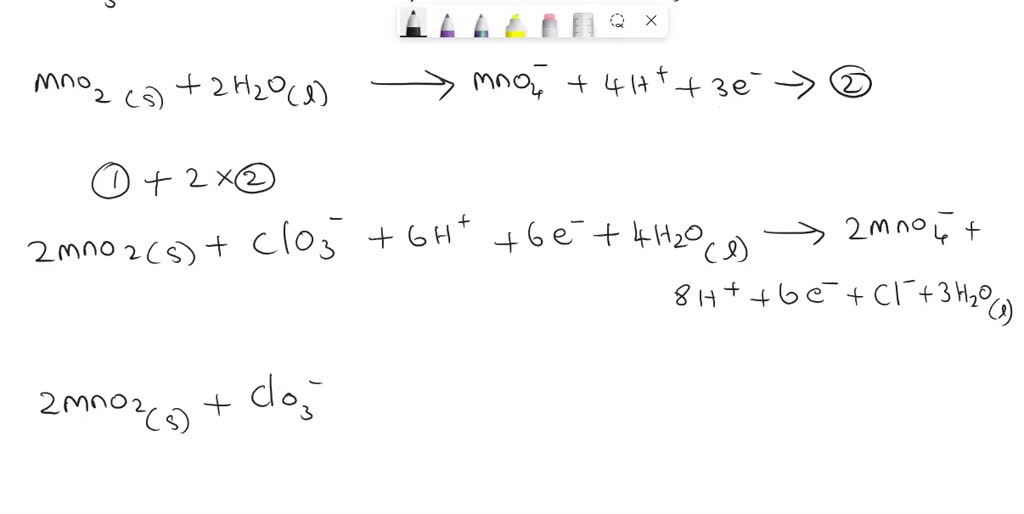 3
mno₂(s) + 2H₂O(l) ⟶ mno₄⁻ + 4H⁺ + 3e⁻ → ②
① + 2 × ②
2mno₂(s) + clo₃⁻ + 6H⁺ + 6e⁻ + 4H₂O(l) ⟶ 2mno₄⁻ +
8H⁺ + 6e⁻ + Cl⁻ + 3H₂O(l)
2mno₂(s) + clo₃⁻